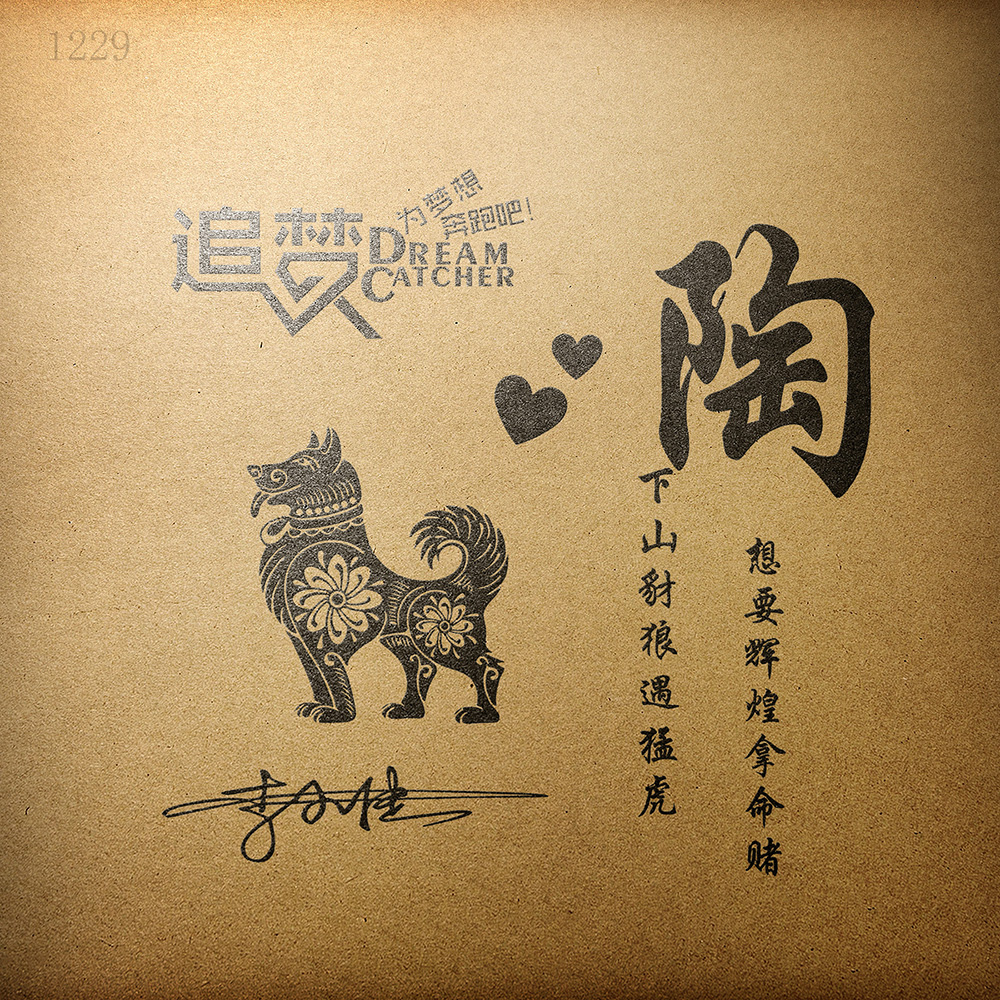 1229
追梦
为梦想
奔跑吧!
DREAM
CATCHER
陶
想要辉煌拿命赌
下山豺狼遇猛虎